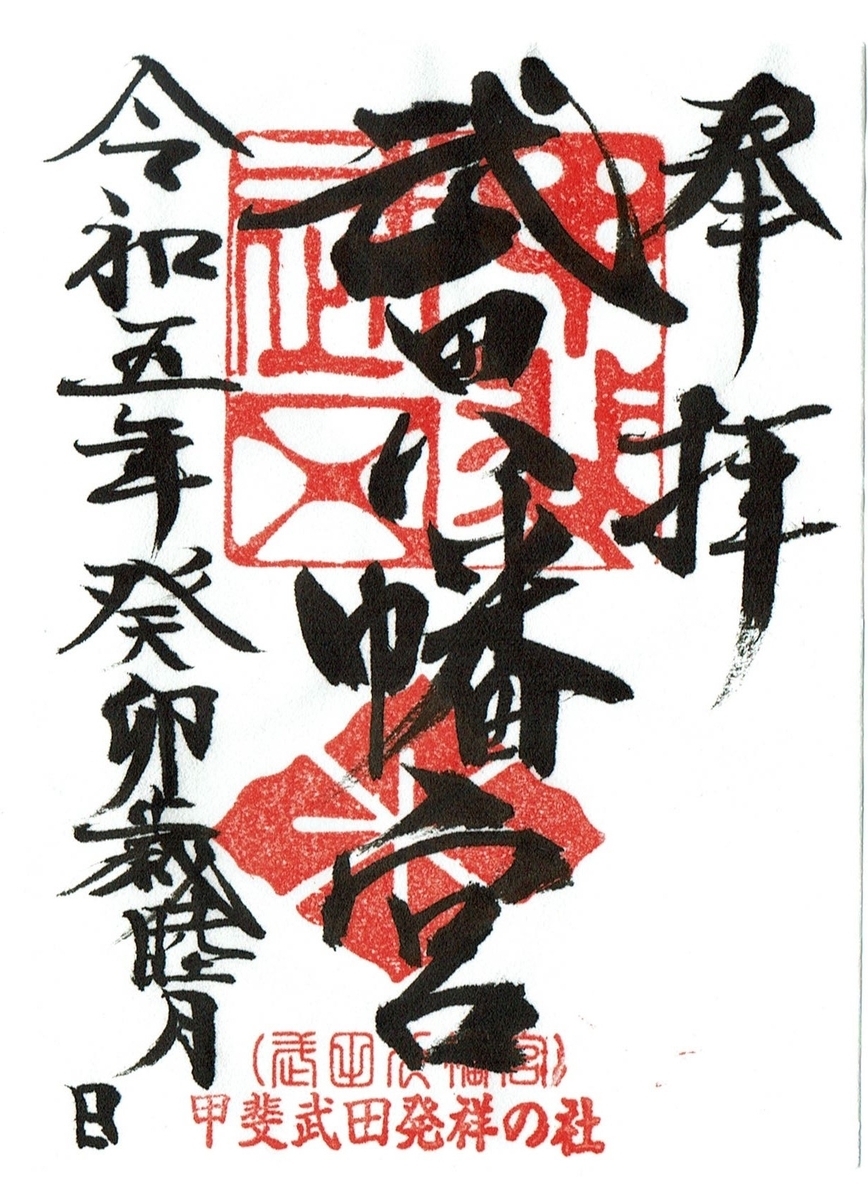 奉拝
武田八幡宮
令和五年癸卯歳睦月
日
(武田八幡宮)
甲斐武田発祥の社